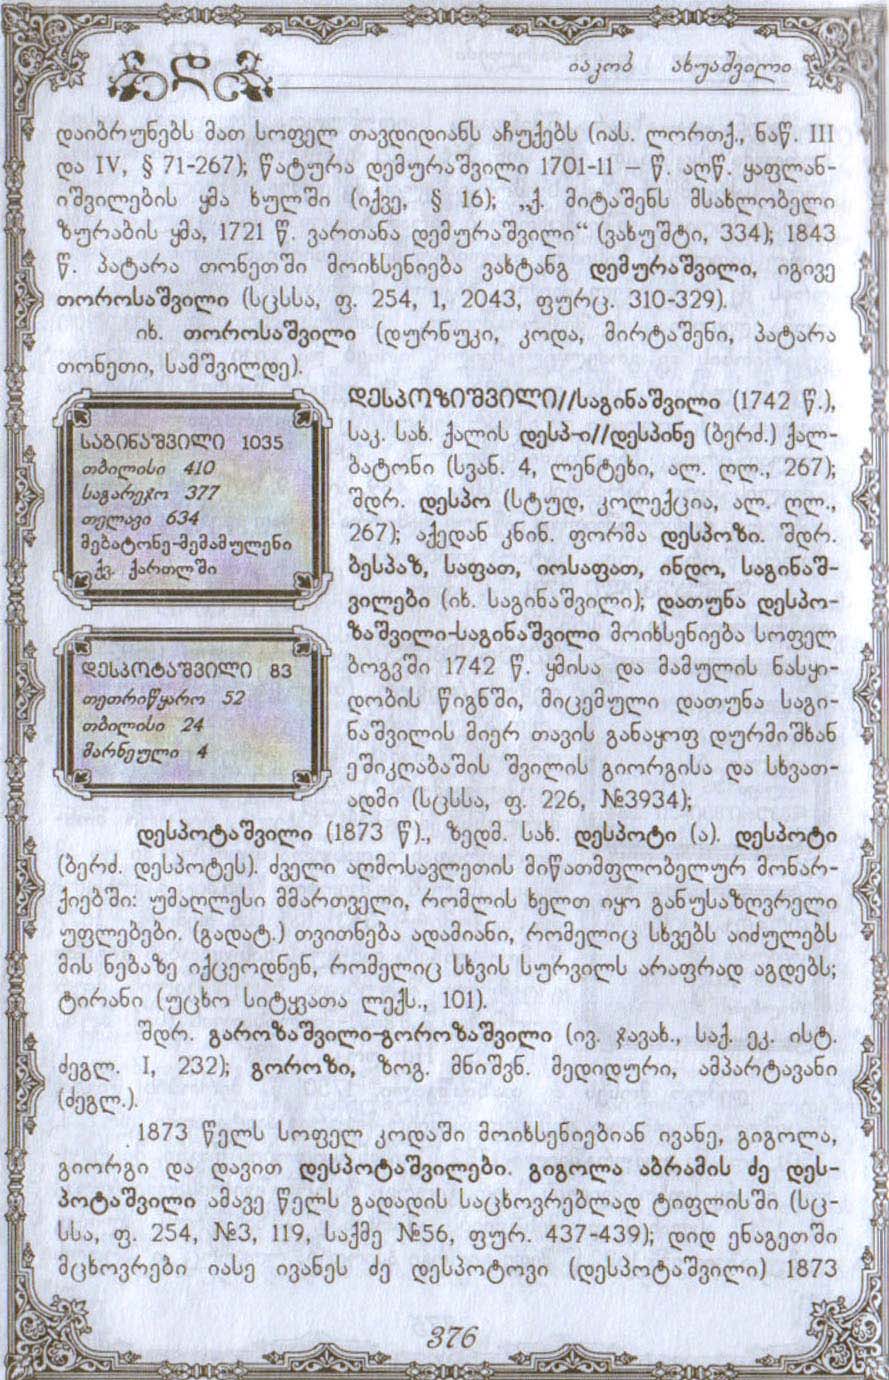 დ
იაკობ ახუაშვილი
დაიბრუნებს მათ სოფელ თავდიდიანს აჩუქებს (იას. ლორთქ., ნაწ. III
და IV, § 71-267); წატურა დემურაშვილი 1701-11 – წ. აღწ. ყაფლან-
იშვილების ყმა ხულში (იქვე, § 16); „ქ. მიტაშენს მსახლობელი
ზურაბის ყმა, 1721 წ. ვართანა დემურაშვილი“ (ვახუშტი, 334); 1843
წ. პატარა თონეთში მოიხსენიება ვახტანგ დემურაშვილი, იგივე
თოროსაშვილი (სცსსა, ფ. 254, 1, 2043, ფურც. 310-329).
იხ. თოროსაშვილი (დურნუკი, კოდა, მირტაშენი, პატარა
თონეთი, სამშვილდე).
დესპოზიშვილი//საგინაშვილი (1742 წ.),
საკ. სახ. ქალის დესპ-ი//დესპინე (ბერძ.) ქალ-
ბატონი (სვან. 4, ლენტეხი, ალ. ღლ., 267);
შდრ. დესპო (სტუდ, კოლექცია, ალ. ღლ.,
267); აქედან კნინ. ფორმა დესპოზი. შდრ.
ბესპაზ, საფათ, იოსაფათ, ინდო, საგინაშ-
ვილები (იხ. საგინაშვილი); დათუნა დესპო-
ზაშვილი-საგინაშვილი მოიხსენიება სოფელ
ბოგვში 1742 წ. ყმისა და მამულის ნასყი-
დობის წიგნში, მიცემული დათუნა საგი-
ნაშვილის მიერ თავის განაყოფ დურმიშხან
ეშიკღაბაშის შვილის გიორგისა და სხვათ-
ადმი (სცსსა, ფ. 226, №3934);
საგინაშვილი 1035
თბილისი 410
საგარეჯო 377
თელავი 634
მებატონე-მემამულენი
ქვ. ქართლში
დესპოტაშვილი 83
თეთრიწყარო 52
თბილისი 24
მარნეული 4
დესპოტაშვილი (1873 წ)., ზედმ. სახ. დესპოტი (ა). დესპოტი
(ბერძ. დესპოტეს). ძველი აღმოსავლეთის მიწათმფლობელურ მონარ-
ქიებში: უმაღლესი მმართველი, რომლის ხელთ იყო განუსაზღვრელი
უფლებები. (გადატ.) თვითნება ადამიანი, რომელიც სხვებს აიძულებს
მის ნებაზე იქცეოდნენ, რომელიც სხვის სურვილს არაფრად აგდებს;
ტირანი (უცხო სიტყვათა ლექს., 101).
შდრ. გაროზაშვილი-გოროზაშვილი (ივ. ჯავახ., საქ. ეკ. ისტ.
ძეგლ. I, 232); გოროზი, ზოგ. მნიშვნ. მედიდური, ამპარტავანი
(ძეგლ.).
1873 წელს სოფელ კოდაში მოიხსენიებიან ივანე, გიგოლა,
გიორგი და დავით დესპოტაშვილები. გიგოლა აბრამის ძე დეს-
პოტაშვილი ამავე წელს გადადის საცხოვრებლად ტიფლისში (სც-
სსა, ფ. 254, №3, 119, საქმე №56, ფურ. 437-439); დიდ ენაგეთში
მცხოვრები იასე ივანეს ძე დესპოტოვი (დესპოტაშვილი) 1873
376